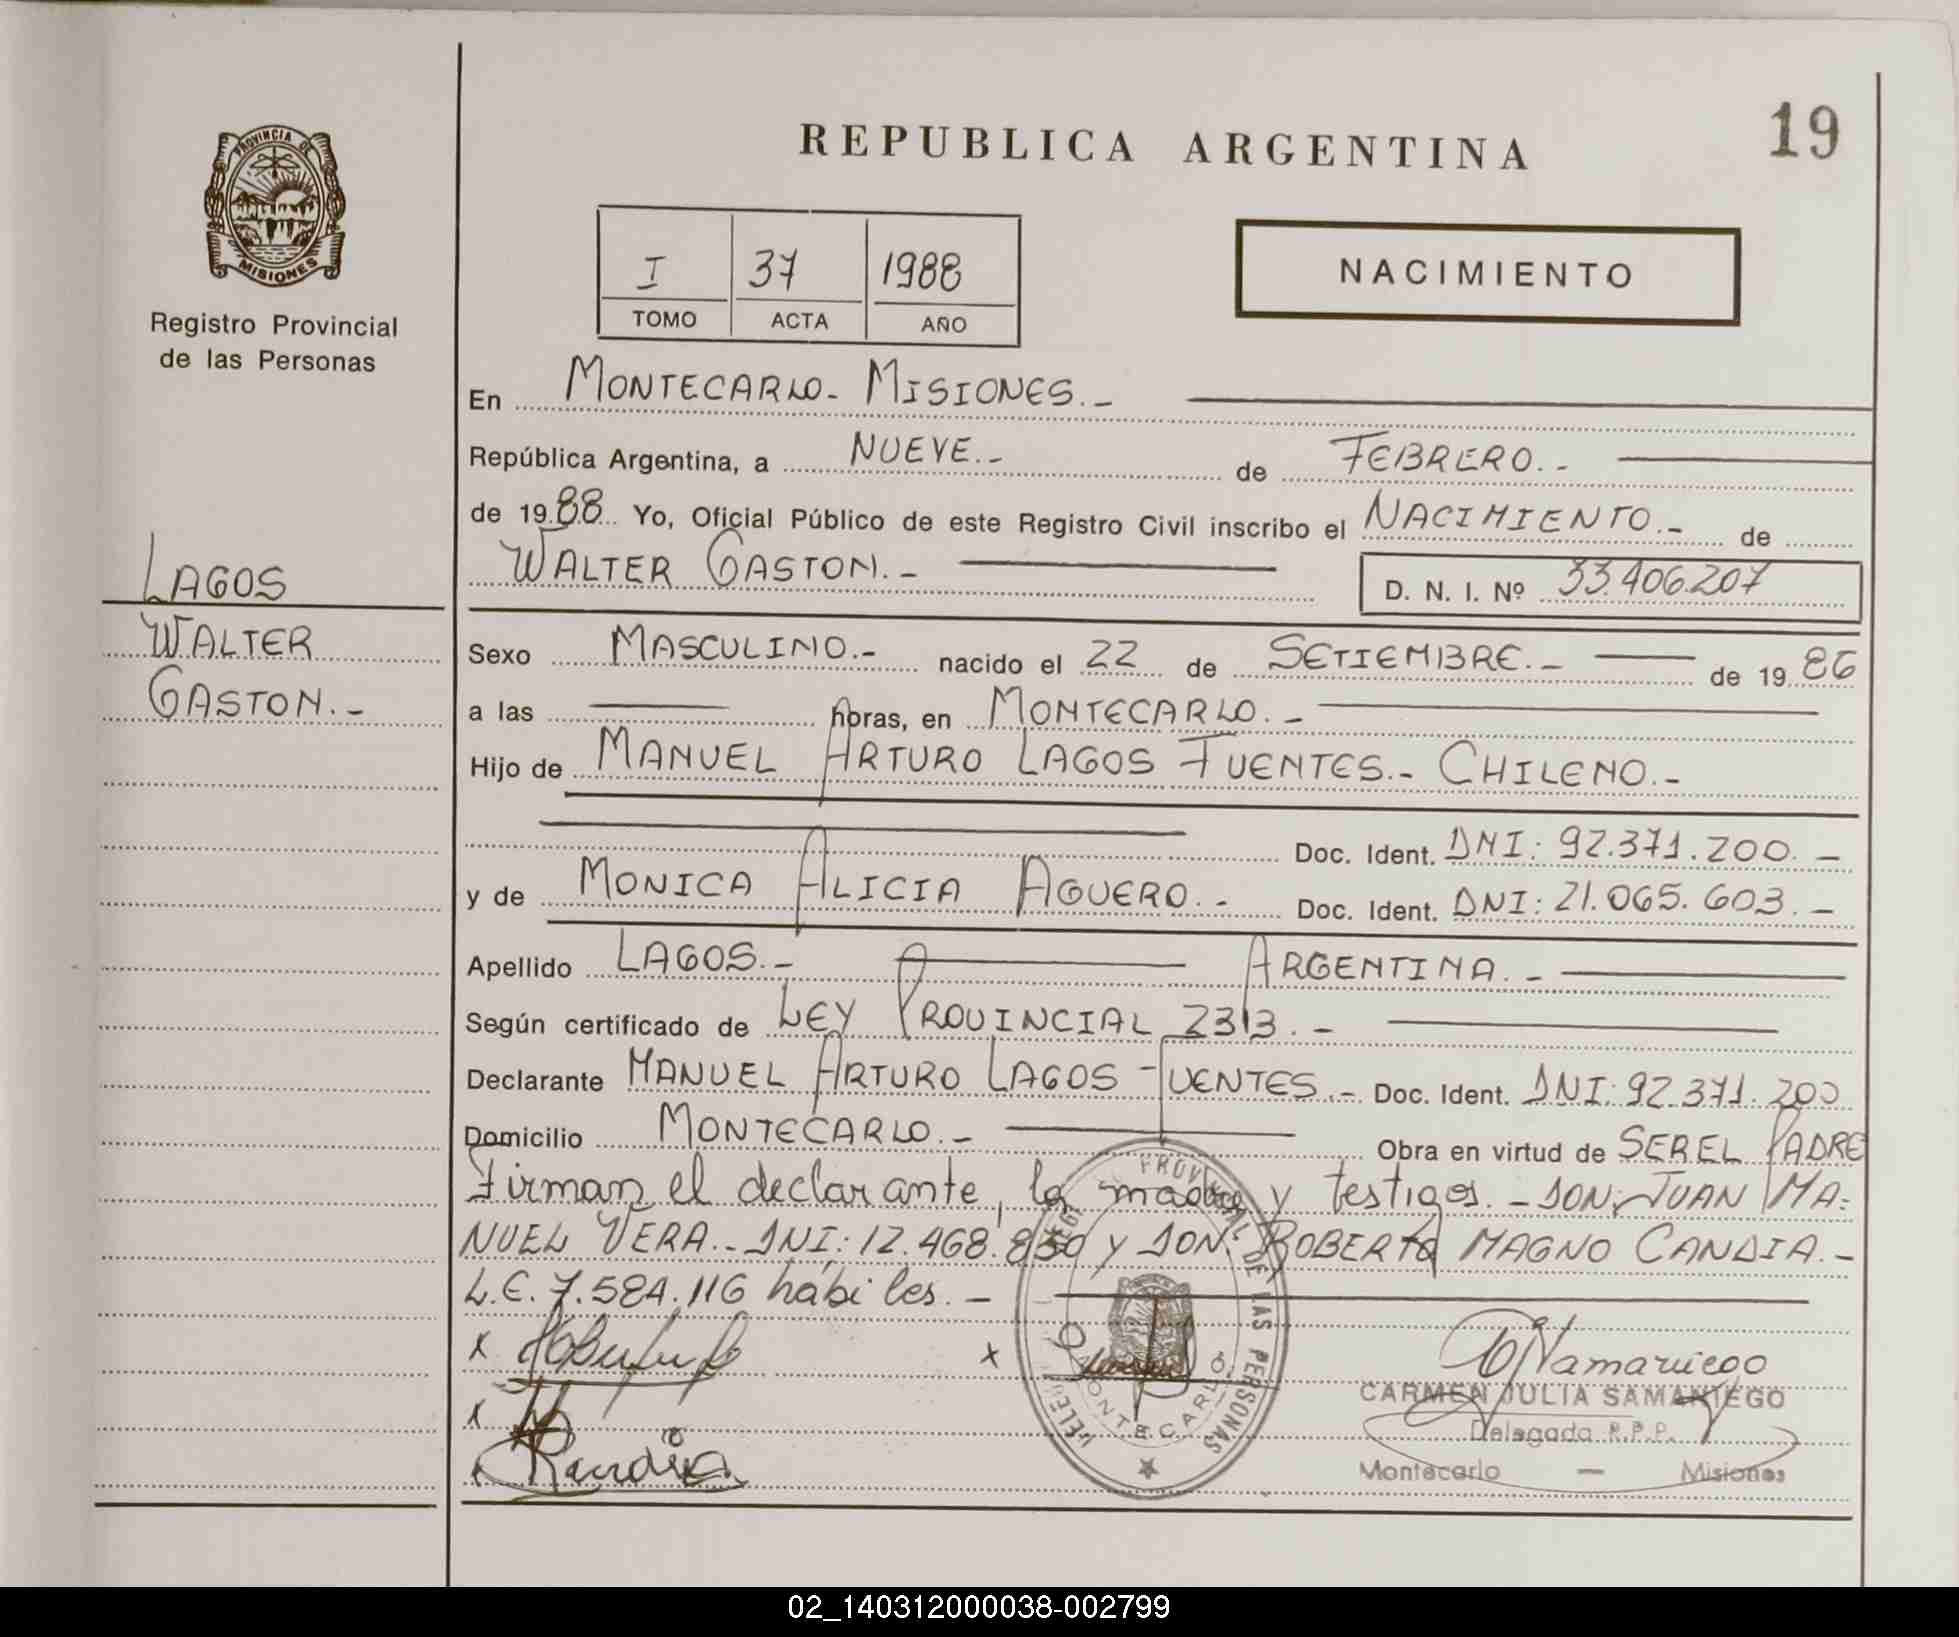 PROVINCIA DE
MISIONES
Registro Provincial
de las Personas
LAGOS
WALTER
GASTON.-
REPUBLICA ARGENTINA
19
I 37 1988
TOMO ACTA AÑO
NACIMIENTO
En MONTECARLO- MISIONES.-
República Argentina, a NUEVE.- de FEBRERO.-
de 1988 Yo, Oficial Público de este Registro Civil inscribo el NACIMIENTO.- de
WALTER GASTON.- D. N. I. Nº 33.406.207
Sexo MASCULINO.- nacido el 22 de SETIEMBRE.- de 1986
a las horas, en MONTECARLO.-
Hijo de MANUEL ARTURO LAGOS FUENTES.- CHILENO.-
Doc. Ident. DNI: 92.371.200.-
y de MONICA ALICIA AGUERO.- Doc. Ident. DNI: 21.065.603.-
Apellido LAGOS.- ARGENTINA.-
Según certificado de LEY PROVINCIAL 2313.-
Declarante MANUEL ARTURO LAGOS FUENTES.- Doc. Ident. DNI: 92.371.200
Domicilio MONTECARLO.- Obra en virtud de SER EL PADRE
Firman el declarante, la madre y testigos.- DON: JUAN MA-
NUEL VERA.- DNI: 12.468.830 y DON: ROBERTO MAGNO CANDIA.-
L.E. 7.584.116 hábiles.-
x x
x
PROVINCIAL DE LAS PERSONAS
MONTECARLO
CARMEN JULIA SAMANIEGO
Delegada R.P.P.
Montecarlo - Misiones
02_140312000038-002799